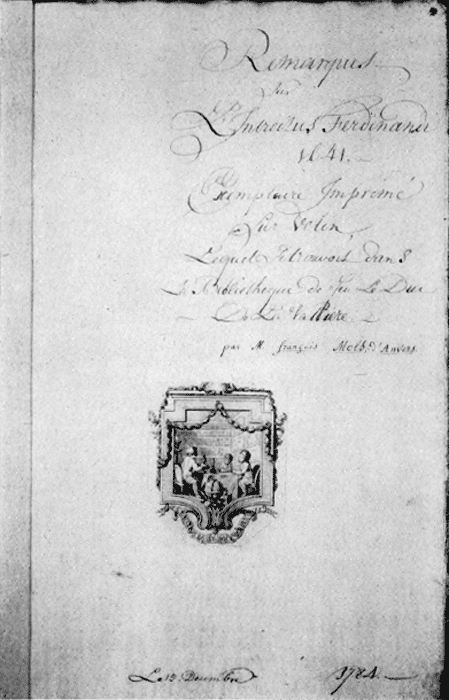 Remarques
sur
L'Introitus Ferdinandi
1641.
Exemplaire Imprimé
Sur Velin,
Lequel Se trouvoit dans
La Bibliotheque de feu Le Duc
De La Valliere.
par M. françois Mols, d'Anvers.
Le 13. Decembre 1784.